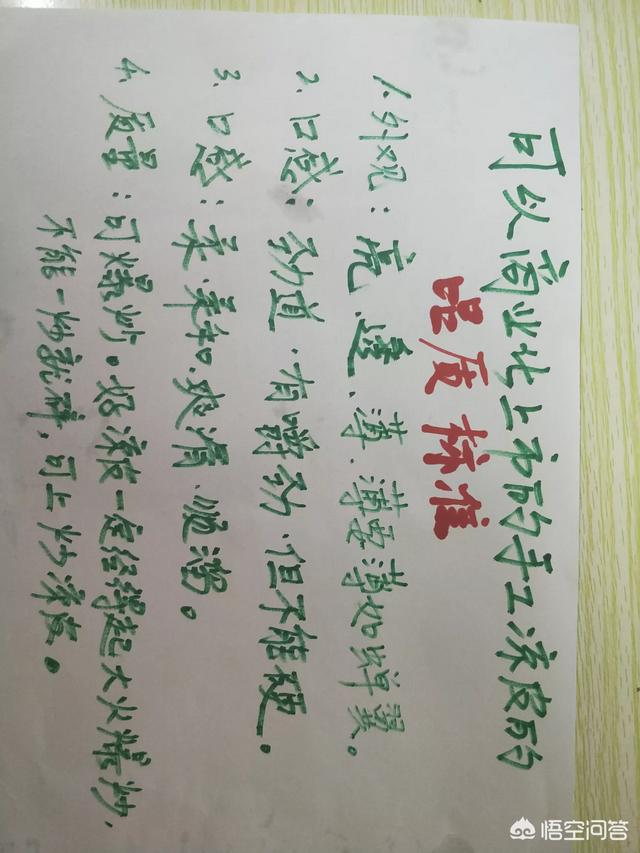 可以商业化上市的手工凉皮的
品质标准
1.外观：亮、薄、薄要薄如蝉翼。
2.口感：劲道、有嚼劲、但不能硬。
3.口感：柔、柔和、爽滑、顺溜。
4.质量：可爆炒。好凉皮一定经得起大火爆炒，
不能一炒就碎，可上炒凉皮。
悟空问答